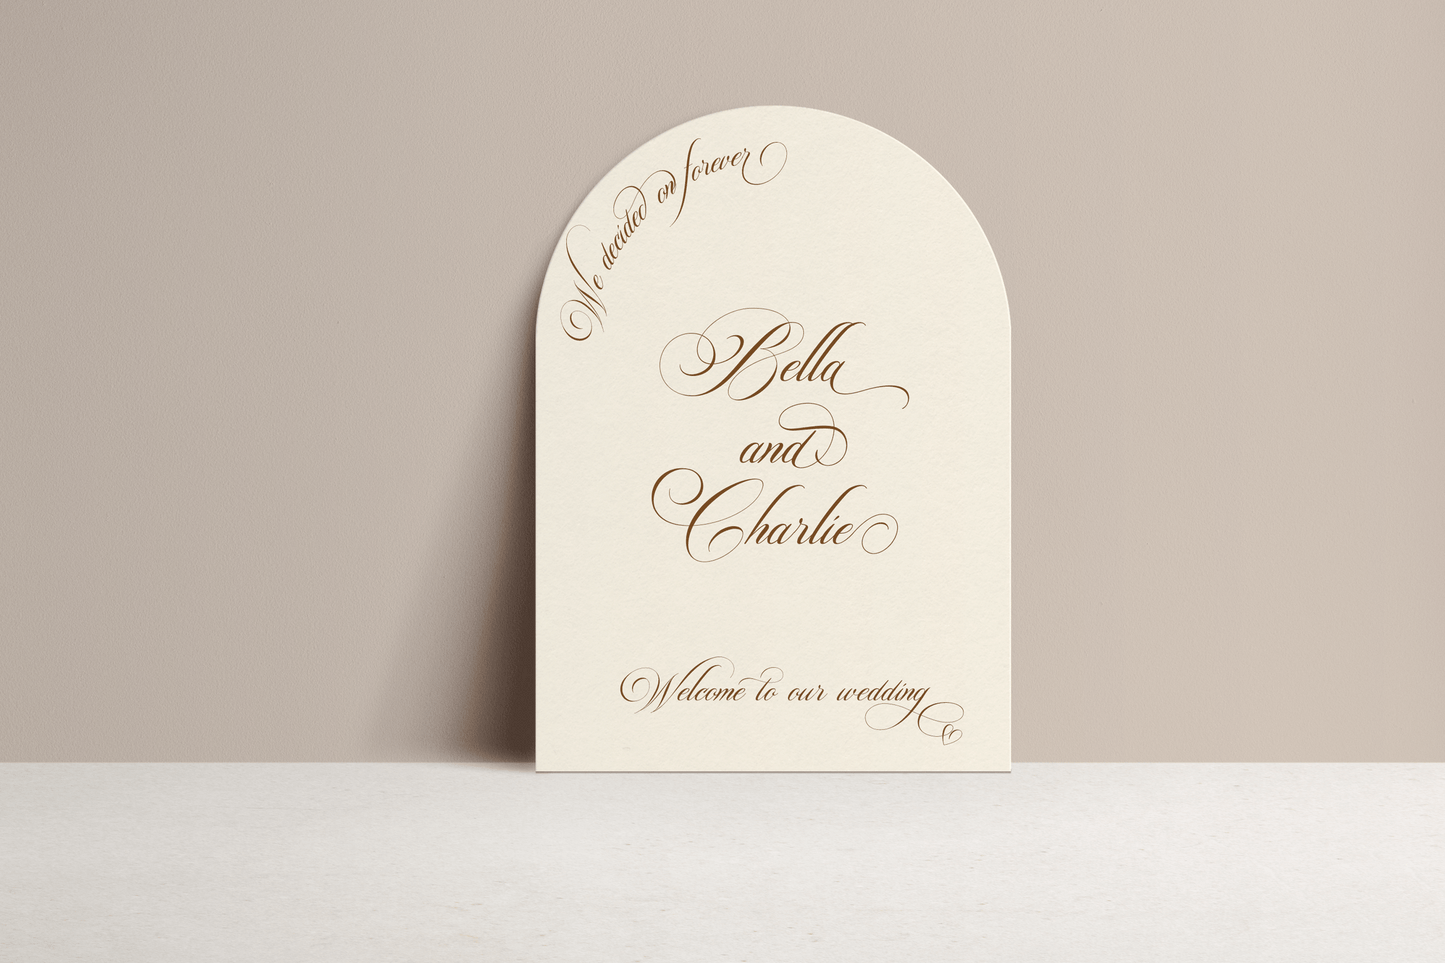 We decided on forever
Bella
and
Charlie
Welcome to our wedding